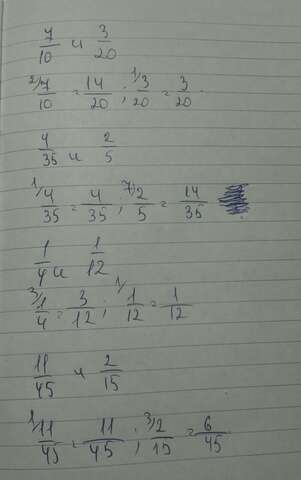 7/10 и 3/20
2/ 7/10 = 14/20 ; 1/ 3/20 = 3/20.
4/35 и 2/5
1/ 4/35 = 4/35 ; 7/ 2/5 = 14/35
1/4 и 1/12
3/ 1/4 = 3/12 ; 1/ 1/12 = 1/12
11/45 и 2/15
1/ 11/45 = 11/45 ; 3/ 2/15 = 6/45